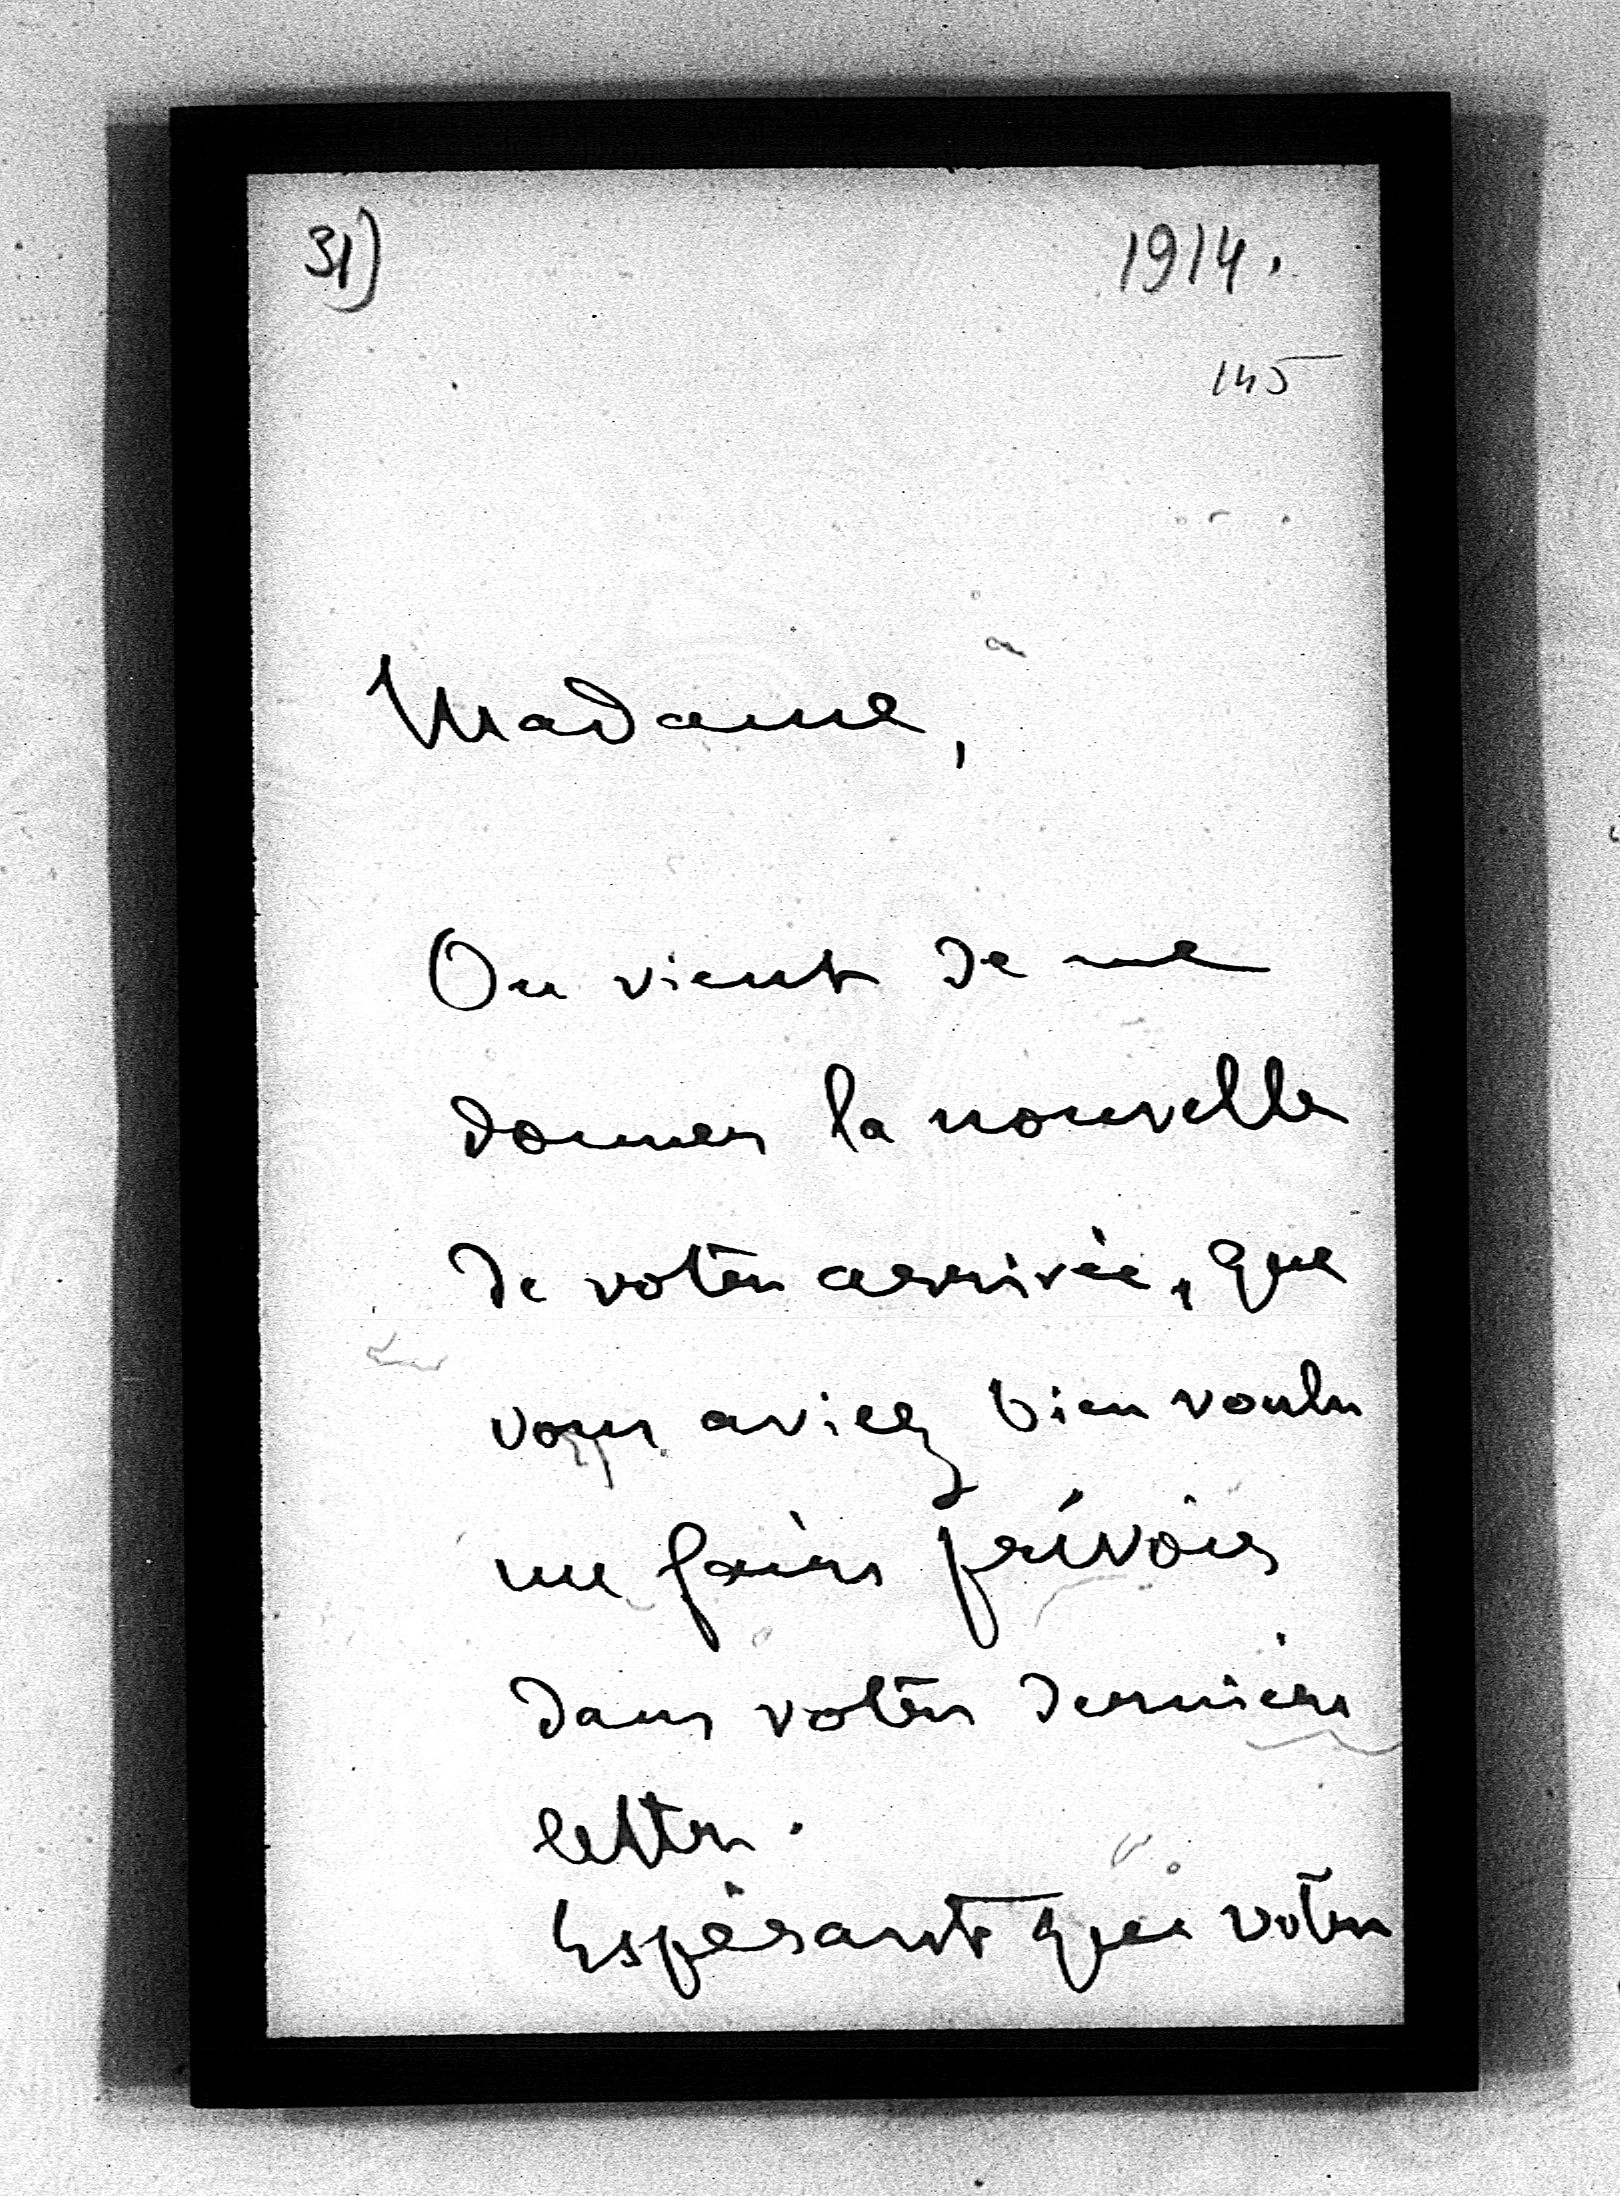 31)
1914.
145
Madame,
On vient de me
donner la nouvelle
de votre arrivée, que
vous aviez bien voulu
me faire prévoir
dans votre dernière
lettre.
Espérant que votre